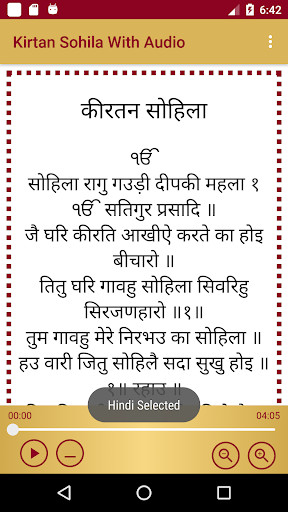 6:42
Kirtan Sohila With Audio
कीरतन सोहिला
ੴ
सोहिला रागु गउड़ी दीपकी महला १
ੴ सतिगुर प्रसादि ॥
जै घरि कीरति आखीऐ करते का होइ
बीचारो ॥
तितु घरि गावहु सोहिला सिवरिहु
सिरजणहारो ॥१॥
तुम गावहु मेरे निरभउ का सोहिला ॥
हउ वारी जितु सोहिलै सदा सुखु होइ ॥
१॥ रहाउ ॥
Hindi Selected
00:00
04:05